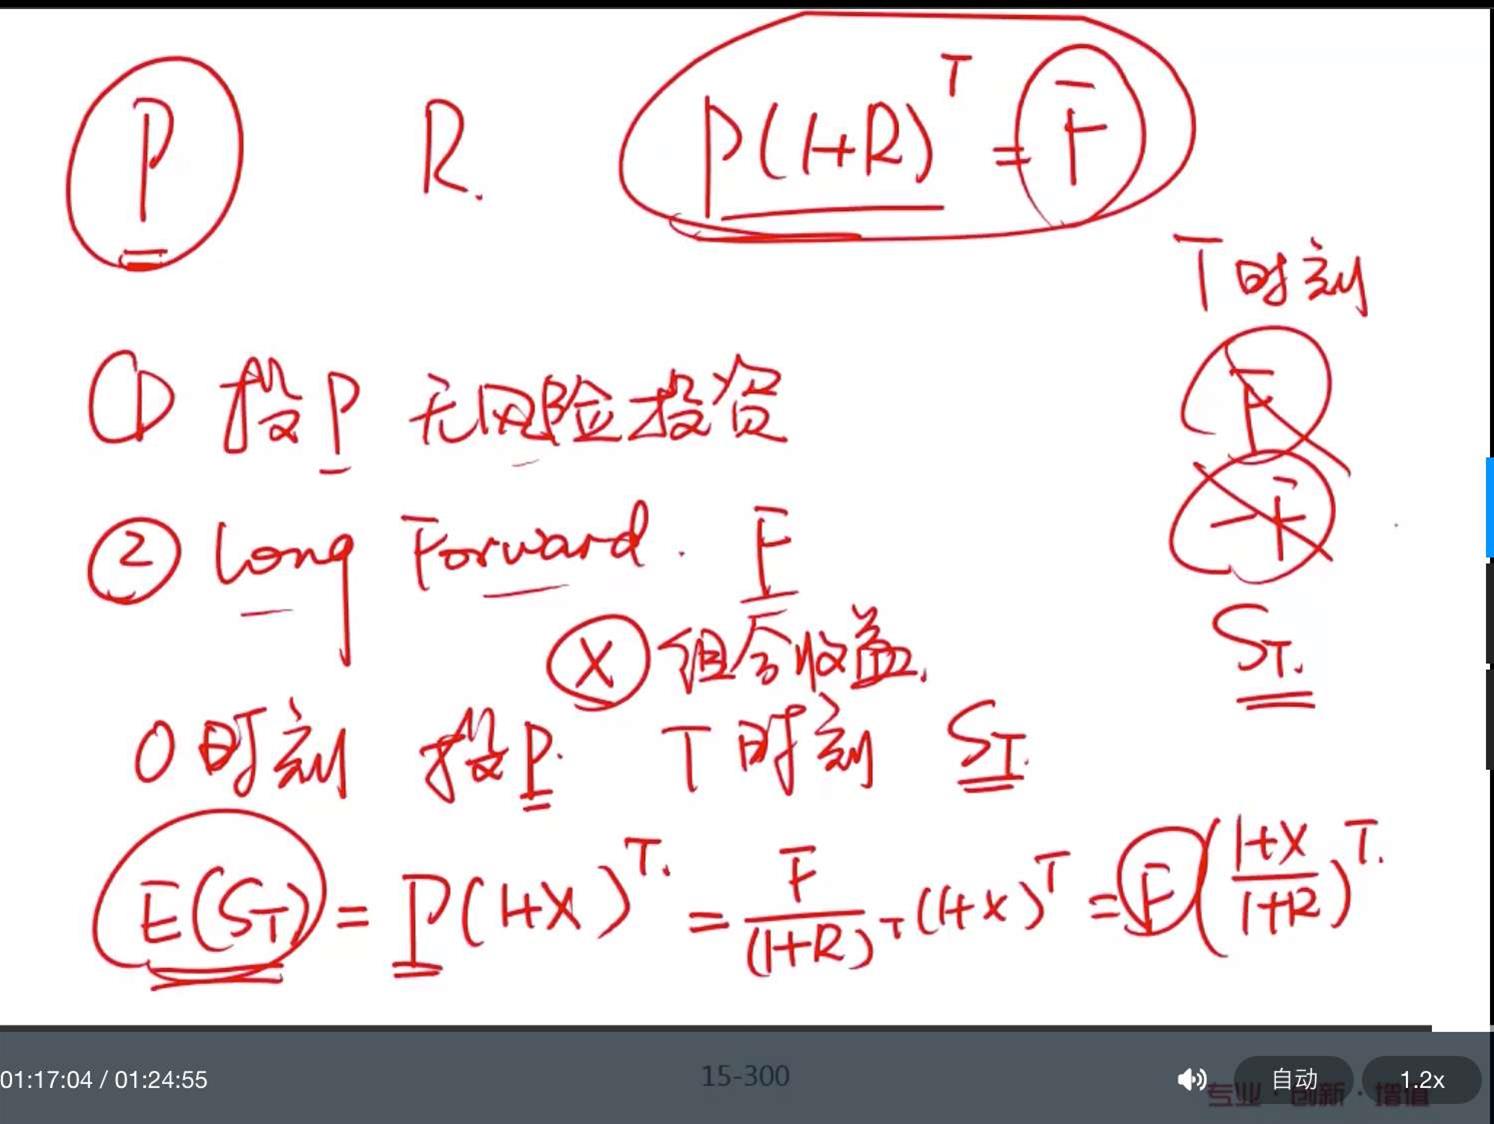 P R. P(1+R)^T = F
T时刻
① 投P 无风险投资 F
② Long Forward. F -F
X 组合收益. S_T.
0时刻 投P. T时刻 S_T.
E(S_T) = P(1+X)^T. = F/(1+R)^T (1+X)^T = F((1+X)/(1+R))^T.
01:17:04 / 01:24:55 15-300 自动 1.2x
专业·创新·增值